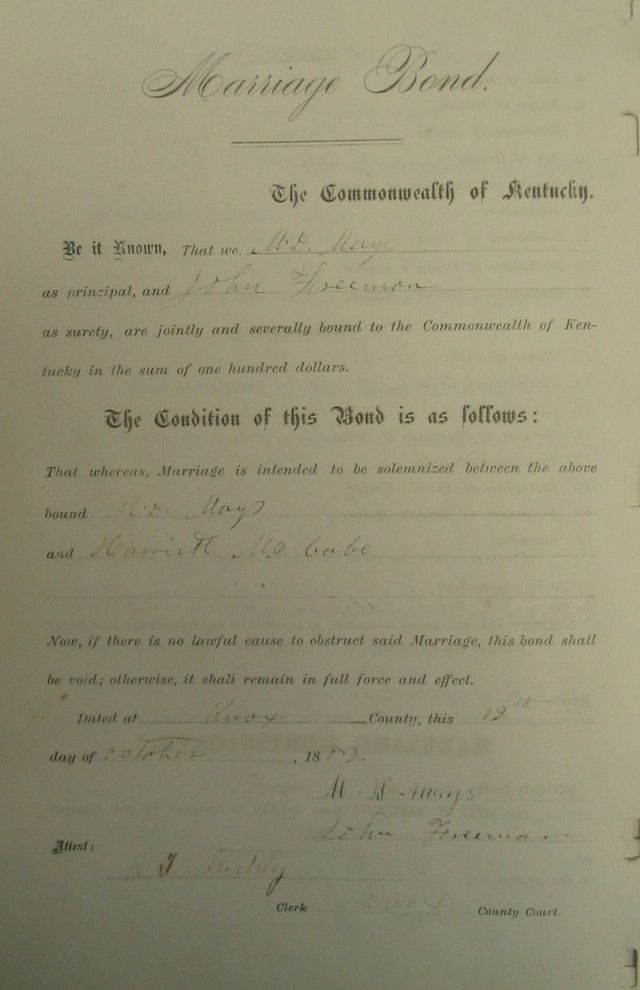 Marriage Bond.
The Commonwealth of Kentucky.
Be it Known, That we, M. D. Mays
as principal, and John Freeman
as surety, are jointly and severally bound to the Commonwealth of Ken-
tucky in the sum of one hundred dollars.
The Condition of this Bond is as follows:
That whereas, Marriage is intended to be solemnized between the above
bound M. D. Mays
and Harriett Mc cabe
Now, if there is no lawful cause to obstruct said Marriage, this bond shall
be void; otherwise, it shall remain in full force and effect.
Dated at Knox County, this 12th
day of october, 188
M. D. Mays
John Freeman
Attest:
Clerk Knox County Court.